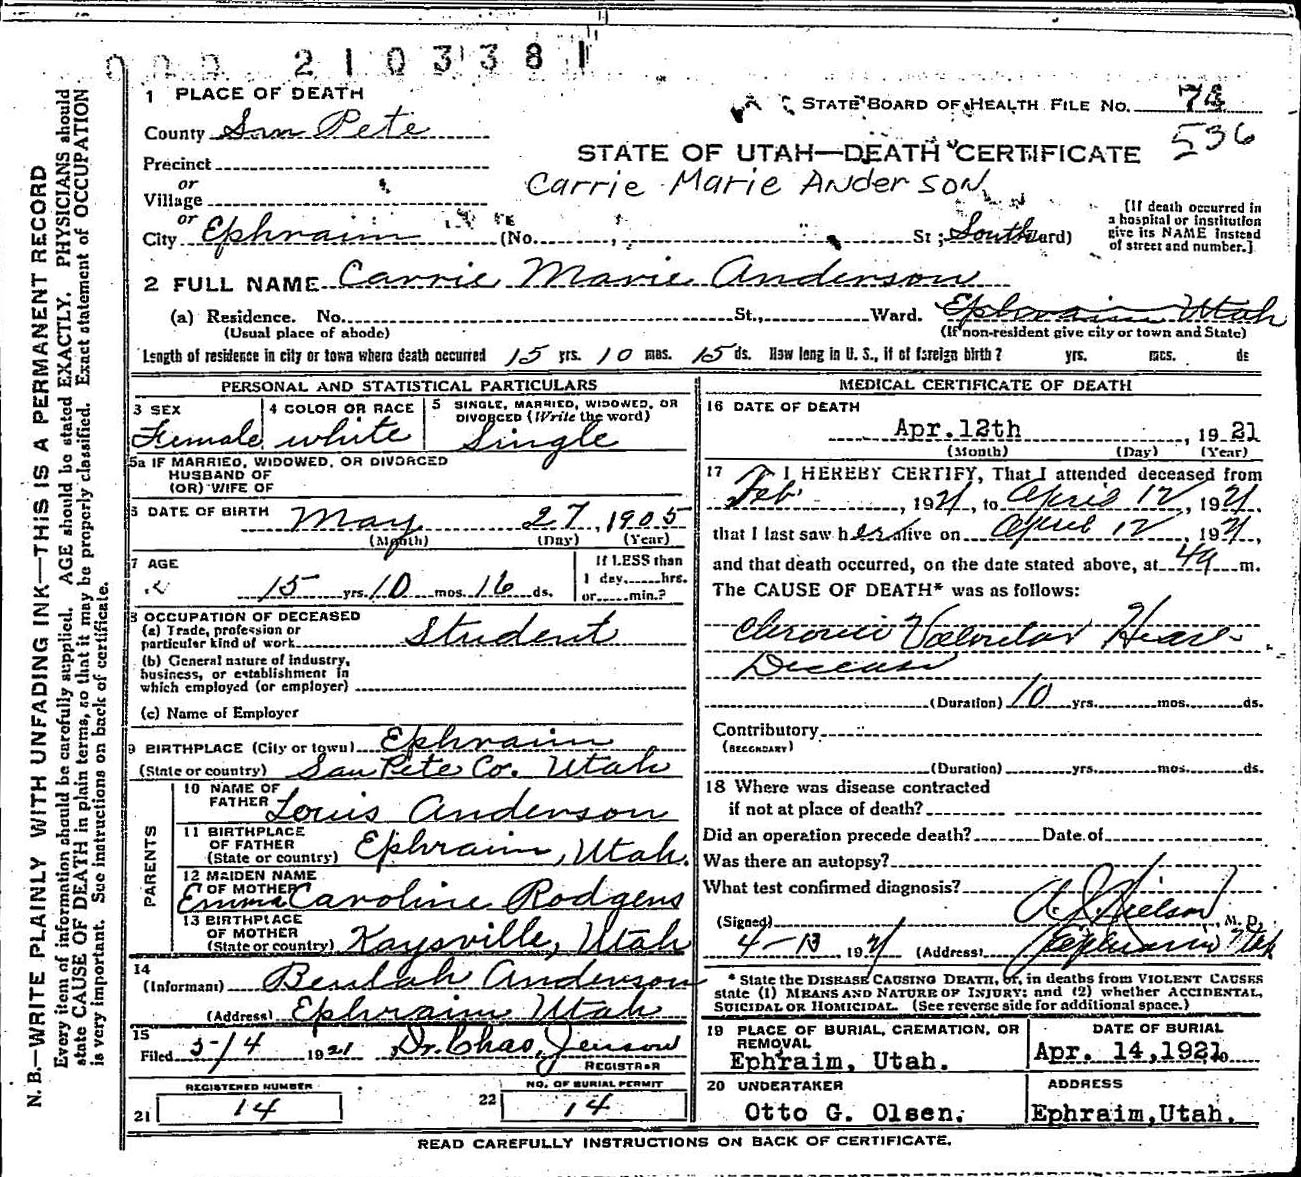 2 1 0 3 3 8 1
1 PLACE OF DEATH
STATE BOARD OF HEALTH FILE No. 74
County San Pete
536
Precinct
STATE OF UTAH—DEATH CERTIFICATE
or
Village
Carrie Marie Anderson
or
City Ephraim (No. , St; South ard)
[If death occurred in
a hospital or institution
give its NAME instead
of street and number.]
2 FULL NAME Carrie Marie Anderson
(a) Residence. No. St., Ward. Ephraim Utah
(Usual place of abode) (If non-resident give city or town and State)
Length of residence in city or town where death occurred 15 yrs. 10 mos. 15 ds. How long in U. S., if of foreign birth? yrs. mos. ds
PERSONAL AND STATISTICAL PARTICULARS
3 SEX
Female
4 COLOR OR RACE
white
5 SINGLE, MARRIED, WIDOWED, OR
DIVORCED (Write the word)
Single
5a IF MARRIED, WIDOWED, OR DIVORCED
HUSBAND OF
(OR) WIFE OF
6 DATE OF BIRTH
May 27, 1905
(Month) (Day) (Year)
7 AGE
15 yrs. 10 mos. 16 ds.
If LESS than
1 day, hrs.
or min.?
8 OCCUPATION OF DECEASED
(a) Trade, profession or
particular kind of work Student
(b) General nature of industry,
business, or establishment in
which employed (or employer)
(c) Name of Employer
9 BIRTHPLACE (City or town) Ephraim
(State or country) San Pete Co. Utah
PARENTS
10 NAME OF
FATHER Louis Anderson
11 BIRTHPLACE
OF FATHER
(State or country) Ephraim, Utah.
12 MAIDEN NAME
OF MOTHER
Emma Caroline Rodgens
13 BIRTHPLACE
OF MOTHER
(State or country) Kaysville, Utah
14
(Informant) Beulah Anderson
(Address) Ephraim Utah
15
Filed 5-14 1921 Dr. Chas, Jenson
REGISTRAR
REGISTERED NUMBER
21 14
NO. OF BURIAL PERMIT
22 14
MEDICAL CERTIFICATE OF DEATH
16 DATE OF DEATH
Apr. 12th , 1921
(Month) (Day) (Year)
17 I HEREBY CERTIFY, That I attended deceased from
Feb. , 1921, to April 12, 1921,
that I last saw her alive on April 12, 1921,
and that death occurred, on the date stated above, at 4a m.
The CAUSE OF DEATH* was as follows:
Chronic Valvular Heart
Decease
(Duration) 10 yrs. mos. ds.
Contributory
(SECONDARY)
(Duration) yrs. mos. ds.
18 Where was disease contracted
if not at place of death?
Did an operation precede death? Date of
Was there an autopsy?
What test confirmed diagnosis?
(Signed) Nielson, M. D.
4-13 1921 (Address) Ephraim Utah
* State the DISEASE CAUSING DEATH, or, in deaths from VIOLENT CAUSES
state (1) MEANS AND NATURE OF INJURY; and (2) whether ACCIDENTAL,
SUICIDAL OR HOMICIDAL. (See reverse side for additional space.)
19 PLACE OF BURIAL, CREMATION, OR
REMOVAL
Ephraim, Utah.
DATE OF BURIAL
Apr. 14, 1921
20 UNDERTAKER
Otto G. Olsen.
ADDRESS
Ephraim, Utah.
READ CAREFULLY INSTRUCTIONS ON BACK OF CERTIFICATE.
N. B.—WRITE PLAINLY WITH UNFADING INK—THIS IS A PERMANENT RECORD
Every item of information should be carefully supplied. AGE should be stated EXACTLY. PHYSICIANS should
state CAUSE OF DEATH in plain terms, so that it may be properly classified. Exact statement of OCCUPATION
is very important. See instructions on back of certificate.